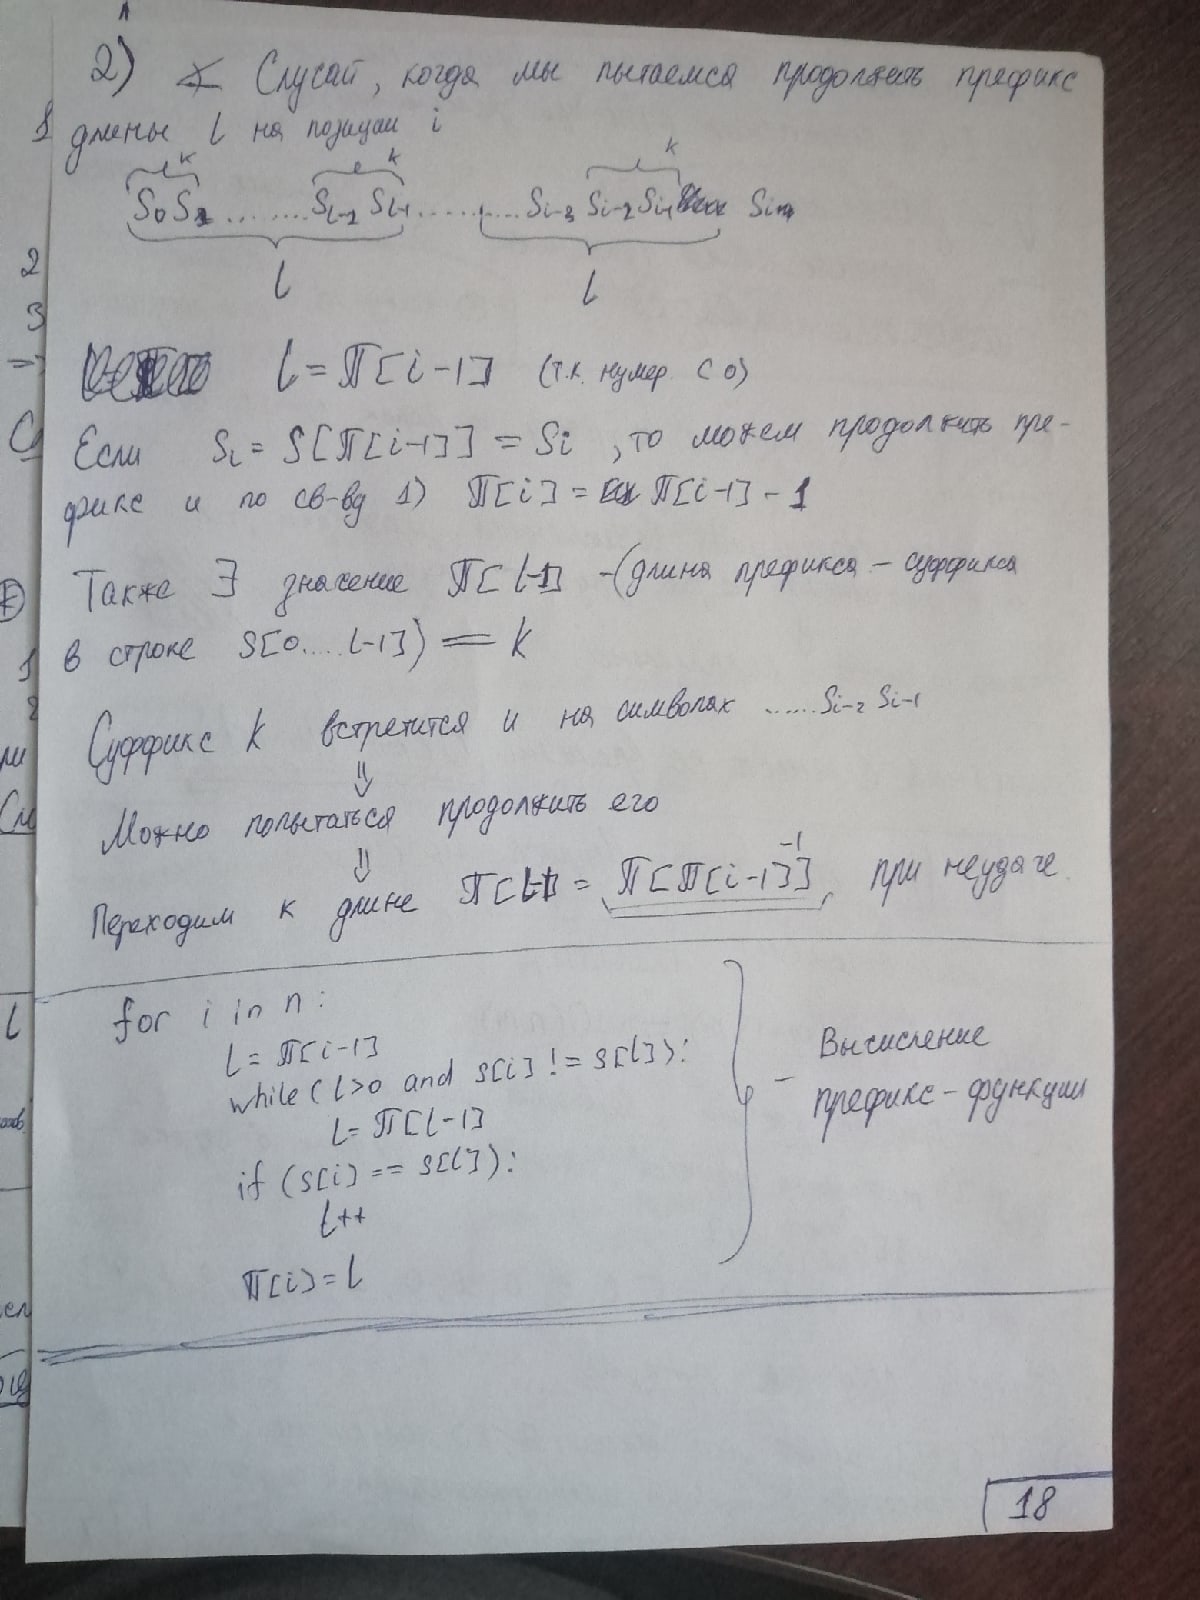 2) Случай, когда мы пытаемся продолжить префикс
длины l на позиции i
k k k
S0 S1 ........ Sl-2 Sl-1 .......... Si-3 Si-2 Si-1 Si
l l
l = П[i-1] (т.к. нумер. с 0)
Если Sl = S[П[i-1]] = Si, то можем продолжить пре-
фикс и по св-ву 1) П[i] = П[i-1] - 1
Также ∃ значение П[l-1] - (длина префикса - суффикса
в строке S[0.....l-1]) = k
Суффикс k встретится и на символах ...... Si-2 Si-1
⇓
Можно попытаться продолжить его
⇓
Переходим к длине П[l-1] = П[П[i-1]-1], при неудаче.
for i in n:
l = П[i-1]
while (l>0 and s[i] != s[l]):
l = П[l-1]
if (s[i] == s[l]):
l++
П[i] = l
- Вычисление
префикс-функции
18